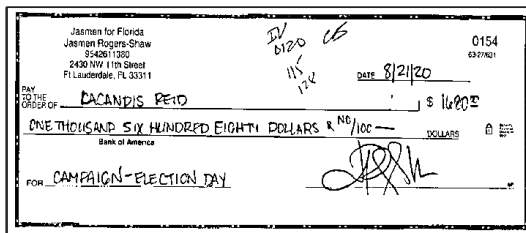 Jasmen for Florida
Jasmen Rogers-Shaw
9542611380
2430 NW 11th Street
Ft Lauderdale, FL 33311
0120
115
128
0154
63-27/631
DATE 8/21/20
PAY TO THE ORDER OF DACANDIS REID $ 1680
ONE THOUSAND SIX HUNDRED EIGHTY DOLLARS & NO/100 — DOLLARS
Bank of America
FOR CAMPAIGN-ELECTION DAY